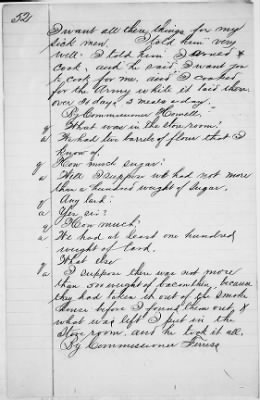 521
I want all these things for my
sick men. I told him very
well. I told him I owned a
cook, and he said I want you
to cook for me, and I cooked
for the Army while it laid there
over 30 days, 3 meals a day.
By Commissioner Howell.
q What was in the store room?
a We had five barrels of flour that I
know of.
q How much sugar?
a Well I suppose we had not more
than a hundred weight of sugar.
q Any lard?
a Yes sir?
q How much?
a We had at least one hundred
weight of lard.
q What else
a I suppose there was not more
than 500 weight of bacon then, because
they had taken it out of the smoke
house before I found them out, &
what was left I put in the
store room. and he took it all.
By Commissioner Ferriss